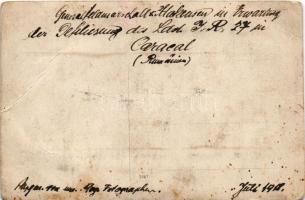 Generalfeldmarschall v. Mackensen in Erwartung
der Besichtigung des Ldst. I. R. 27 in
Caracal
(Rumänien)
Aufgen. von uns. Rgt. Fotographen. Juli 191